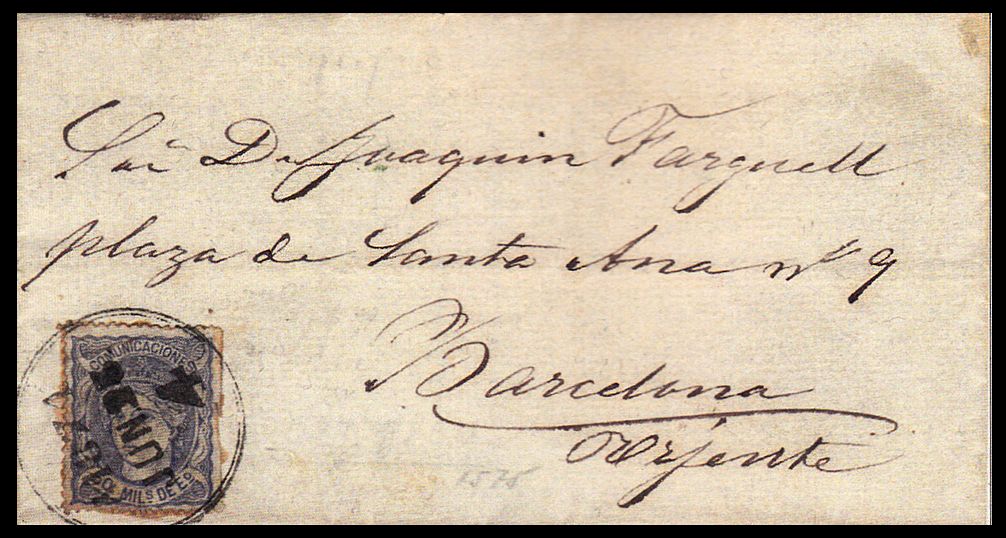 Sõr D. Juaquin Farguell
plaza de Santa Ana nº 9
Barcelona
Urjente
COMUNICACIONES
50 MILS DE EO
1575